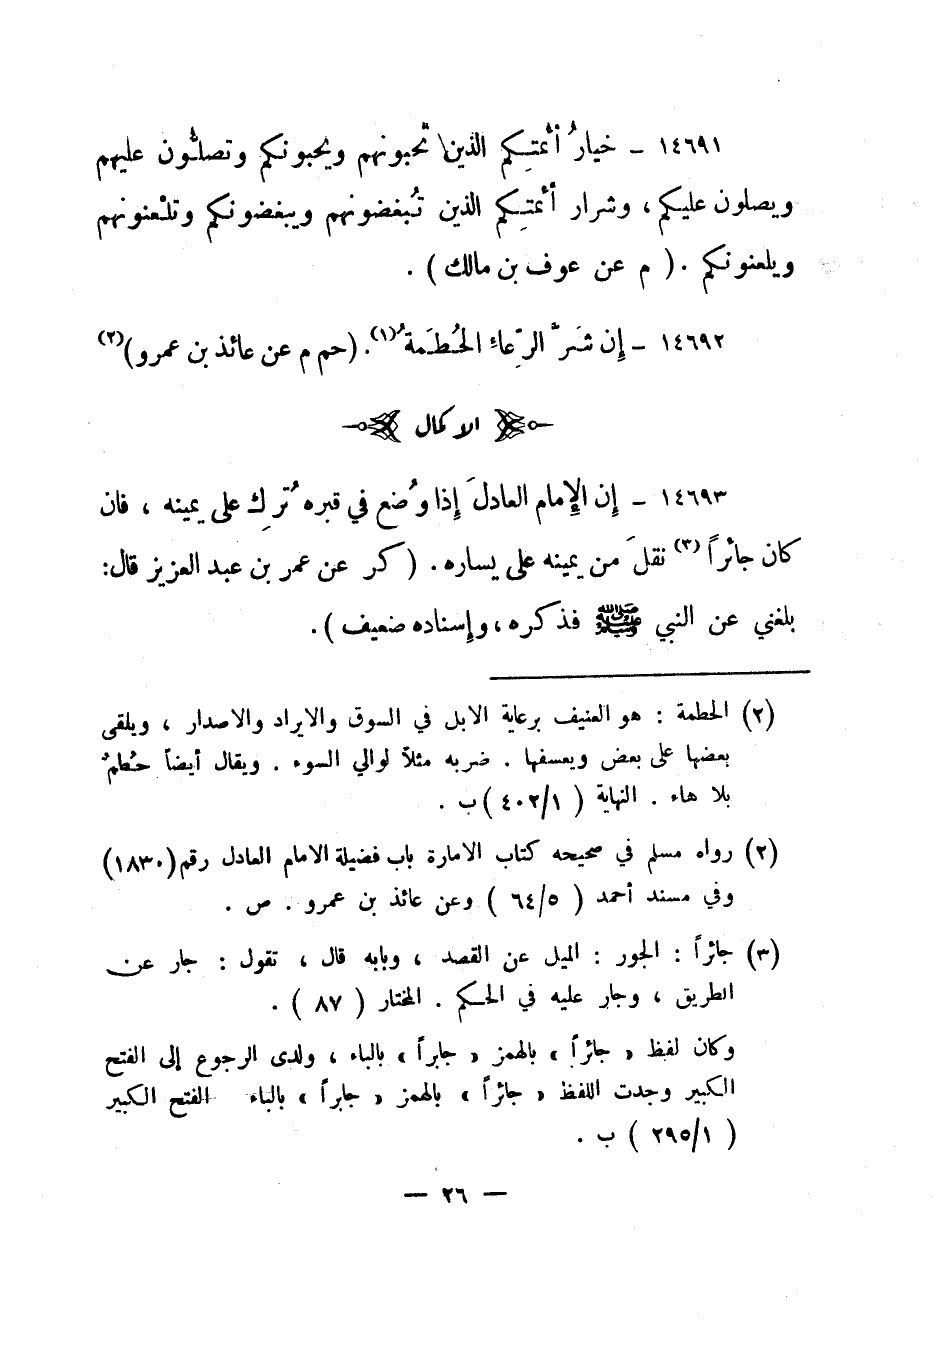 ١٤٦٩١ – خيارُ أئمتِكم الذين تُحبونهم ويحبونكم وتصلُّون عليهم
ويصلون عليكم ، وشرار أئمتِكم الذين تُبغضونهم ويبغضونكم وتلْعنونهم
ويلعنونكم . ( م عن عوف بن مالك ) .
١٤٦٩٢ – إِن شَرَّ الرِّعاءِ الحُطَمةُ (١) . (حم م عن عائذ بن عمرو) (٢)
الاكمال
١٤٦٩٣ – إِن الإِمام العادلَ إِذا وُضع في قبره تُرِك على يمينه ، فان
كان جائراً (٣) نقلَ من يمينه على يساره . ( كر عن عمر بن عبد العزيز قال:
بلغني عن النبي ﷺ فذكره ، وإسناده ضعيف ) .
(٢) الحطمة : هو العنيف برعاية الابل في السوق والايراد والاصدار ، ويلقى
بعضها على بعض ويعسفها . ضربه مثلاً لوالي السوء . ويقال أيضاً حُطَمٌ
بلا هاء . النهاية ( ٤٠٢/١ ) ب .
(٢) رواه مسلم في صحيحه كتاب الامارة باب فضيلة الامام العادل رقم (١٨٣٠)
وفي مسند أحمد ( ٦٤/٥ ) وعن عائذ بن عمرو . ص .
(٣) جائراً : الجور : الميل عن القصد ، وبابه قال ، تقول : جار عن
الطريق ، وجار عليه في الحكم . المختار ( ٨٧ ) .
وكان لفظ « جائراً » بالهمز « جابراً » بالباء ، ولدى الرجوع إلى الفتح
الكبير وجدت اللفظ « جائراً » بالهمز « جابراً » بالباء الفتح الكبير
( ٢٩٥/١ ) ب .
— ٢٦ —